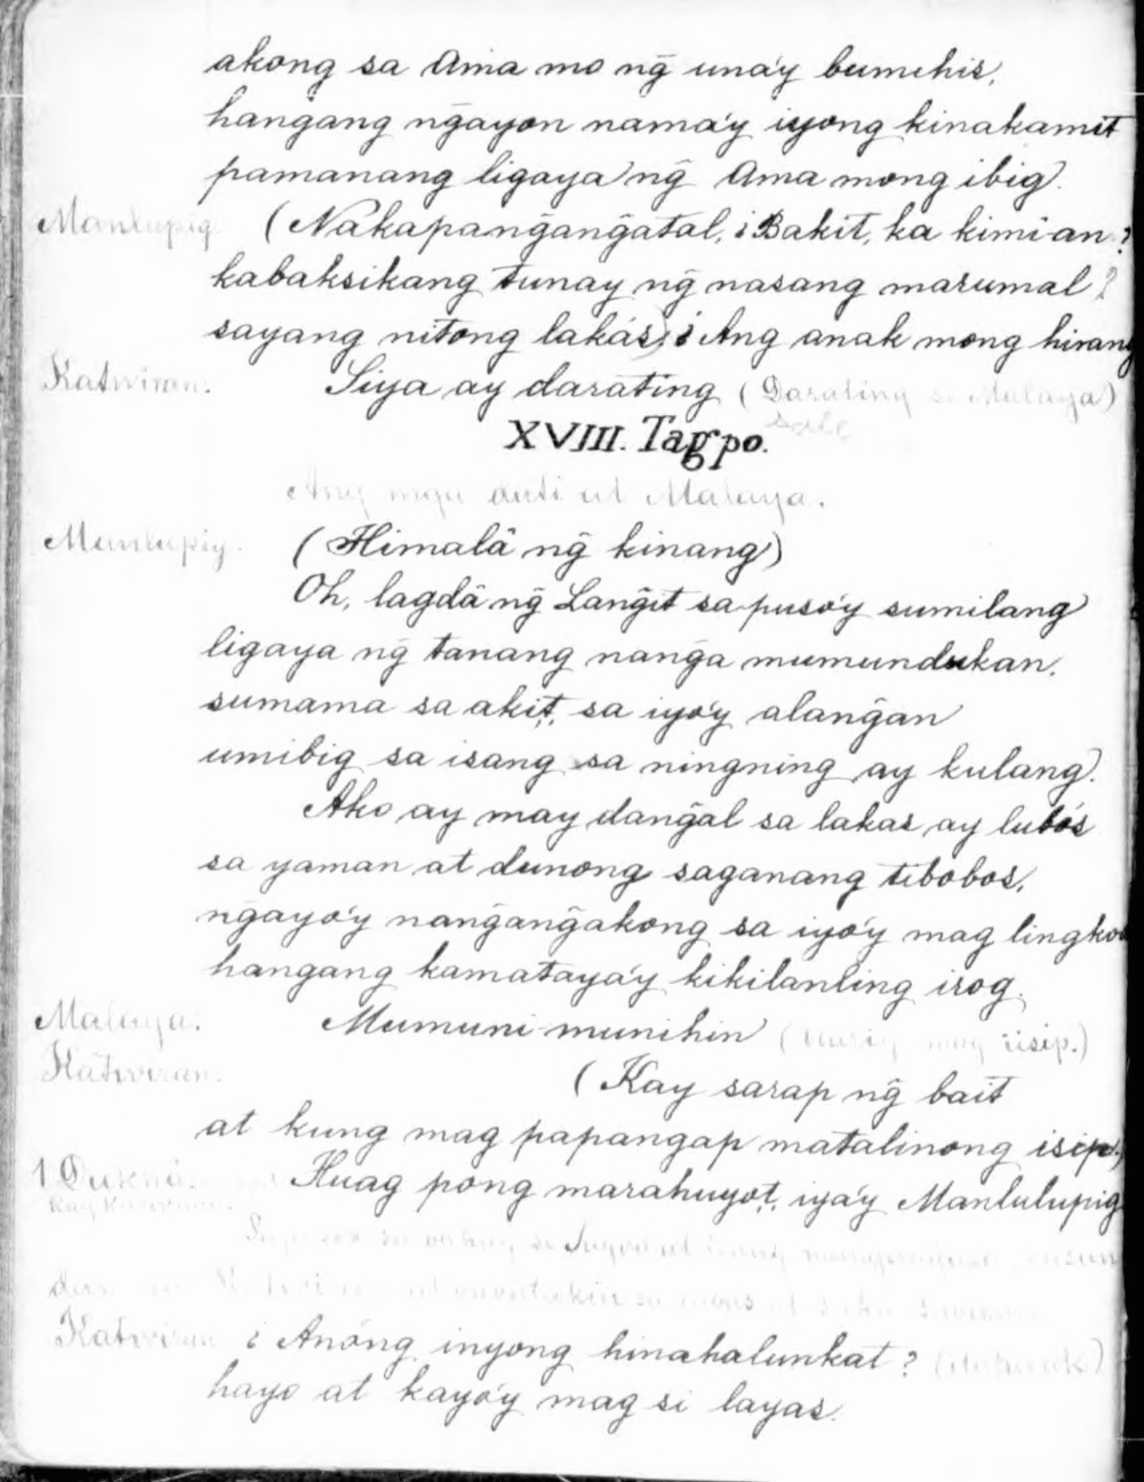 akong sa Ama mo ng̃ una'y bumihis,
hang̃ang ng̃ayon nama'y iyong kinakamit
pamanang ligaya ng̃ Ama mong ibig.
Manlupig (Nakapang̃ang̃atal, ¿Bakit, ka kimi-an?
kabaksikang tunay ng̃ nasang marumal?
sayang nitong lakás) ¿Ang anak mong hirang
Katwiran. Siya ay darating (Darating si Malaya)
XVIII. Tagpo.
Ang mga dati at Malaya.
Manlupig. (Himalâ ng̃ kinang)
Oh, lagdâ ng̃ Lang̃it sa puso'y sumilang
ligaya ng̃ tanang nang̃a mumundukan,
sumama sa akit, sa iyo'y alang̃an
umibig sa isang sa ningning ay kulang.
Ako ay may dang̃al sa lakas ay lubós
sa yaman at dunong saganang tibobos,
ng̃ayo'y nang̃ang̃akong sa iyo'y mag lingkod
hangang kamataya'y kikilanling irog.
Malaya. Mumuni-munihin ( mag iisip.)
Katwiran. (Kay sarap ng̃ bait
at kung mag papangap matalinong isip.)
1 Dukhâ. Huag pong marahuyot, iya'y Manlulupig
Kay Katwiran.
sa at isang
Katwiran ¿Anóng inyong hinahalunkat?
hayo at kayo'y mag si layas.